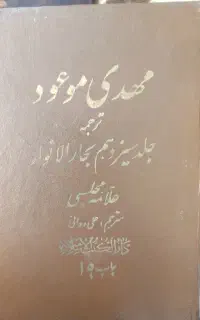 مهدی موعود
ترجمه
جلد سیزدهم بحار الانوار
علامه مجلسی
مترجم: علی دوانی
دار الکتب الاسلامیه
چاپ ۱۹